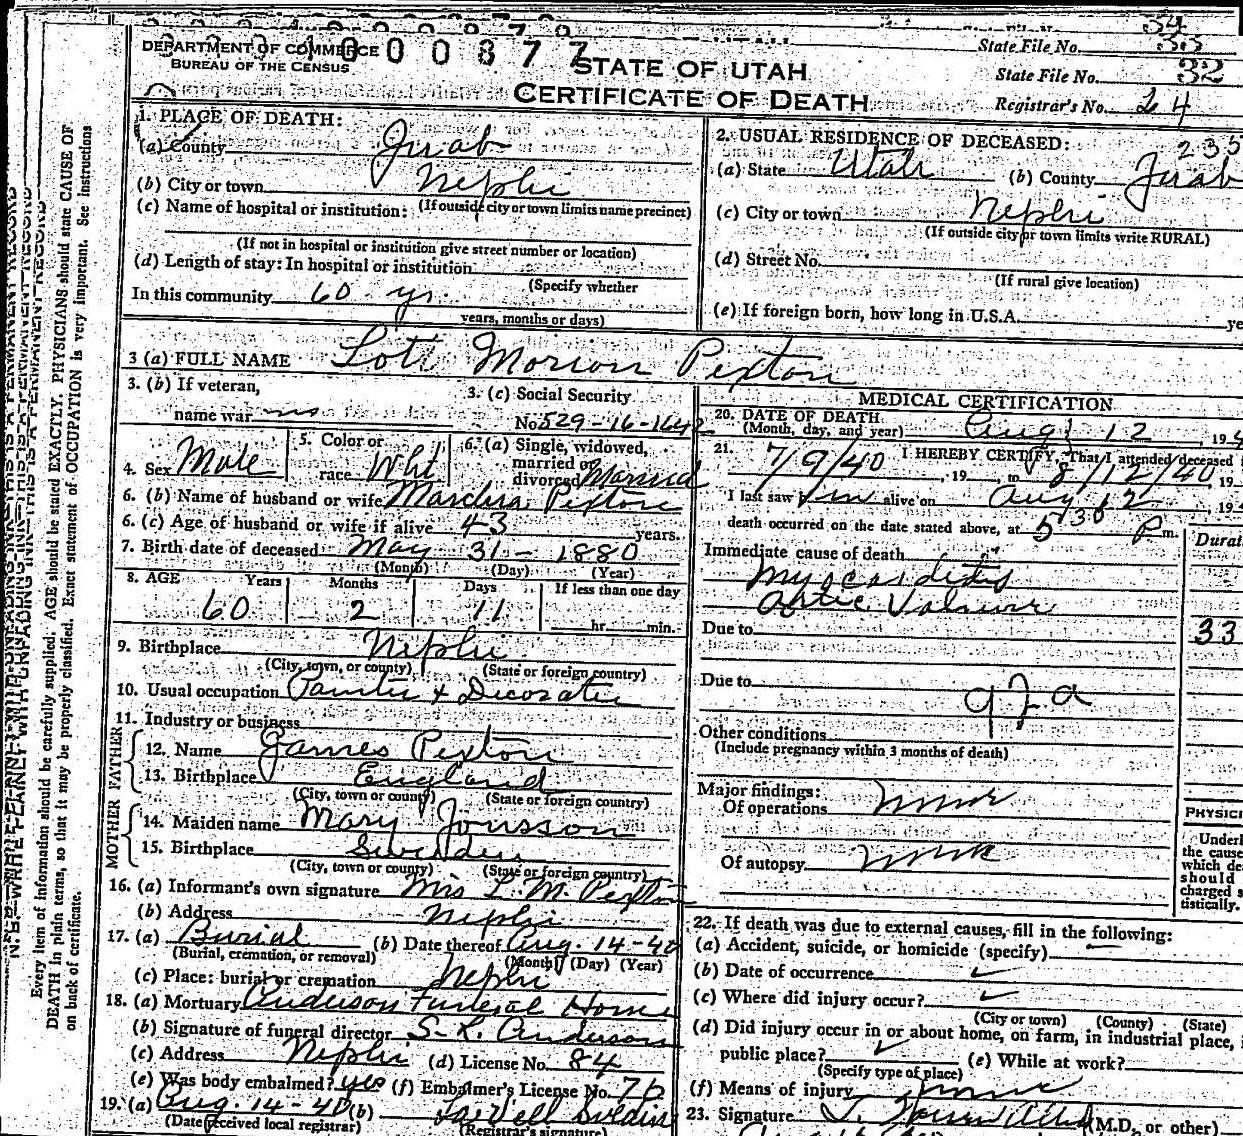 DEPARTMENT OF COMMERCE
BUREAU OF THE CENSUS
0 0 8 7 7
STATE OF UTAH
CERTIFICATE OF DEATH
State File No.
State File No. 32
Registrar's No. 24
1. PLACE OF DEATH:
(a) County Juab
(b) City or town Nephi
(c) Name of hospital or institution: (If outside city or town limits name precinct)
(If not in hospital or institution give street number or location)
(d) Length of stay: In hospital or institution
(Specify whether
In this community 60 yr.
years, months or days)
2. USUAL RESIDENCE OF DECEASED:
235
(a) State Utah (b) County Juab
(c) City or town Nephi
(If outside city or town limits write RURAL)
(d) Street No.
(If rural give location)
(e) If foreign born, how long in U.S.A. ye
3 (a) FULL NAME Lott Morion Pexton
3. (b) If veteran, name war no
3. (c) Social Security No. 529-16-1642
4. Sex Male
5. Color or race Wht
6. (a) Single, widowed, married or divorced Married
6. (b) Name of husband or wife Pexton
6. (c) Age of husband or wife if alive 43 years.
7. Birth date of deceased May 31 - 1880
(Month) (Day) (Year)
8. AGE Years Months Days If less than one day
60 2 11 hr. min.
9. Birthplace Nephi
(City, town, or county) (State or foreign country)
10. Usual occupation Painter & Decorator
11. Industry or business
FATHER
12. Name James Pexton
13. Birthplace England
(City, town or county) (State or foreign country)
MOTHER
14. Maiden name Mary Jonsson
15. Birthplace Sweden
(City, town or county) (State or foreign country)
16. (a) Informant's own signature Mrs L. M. Pexton
(b) Address Nephi
17. (a) Burial (b) Date thereof Aug. 14-40
(Burial, cremation, or removal) (Month) (Day) (Year)
(c) Place: burial or cremation Nephi
18. (a) Mortuary Anderson Funeral Home
(b) Signature of funeral director S. R. Anderson
(c) Address Nephi (d) License No. 84
(e) Was body embalmed? yes (f) Embalmer's License No. 76
19. (a) Aug. 14-40 (b)
(Date received local registrar) (Registrar's signature)
MEDICAL CERTIFICATION
20. DATE OF DEATH
(Month, day, and year) Aug 12, 194
21. I HEREBY CERTIFY, That I attended deceased
7/9/40, 19 to 8/12/40, 19
I last saw him alive on Aug 12, 194
death occurred on the date stated above, at 5 30 P. m.
Durati
Immediate cause of death
Myocarditis
Aortic
Due to 33
Due to
Other conditions
(Include pregnancy within 3 months of death)
Major findings:
Of operations none
Of autopsy none
PHYSICI
Underl
the cause
which de
should
charged s
tistically.
22. If death was due to external causes, fill in the following:
(a) Accident, suicide, or homicide (specify) —
(b) Date of occurrence ✓
(c) Where did injury occur? ✓
(City or town) (County) (State)
(d) Did injury occur in or about home, on farm, in industrial place, i
public place? ✓ (e) While at work?
(Specify type of place)
(f) Means of injury none
23. Signature (M.D., or other)
Every item of information should be carefully supplied. AGE should be stated EXACTLY. PHYSICIANS should state CAUSE OF
DEATH in plain terms, so that it may be properly classified. Exact statement of OCCUPATION is very important. See instructions
on back of certificate.